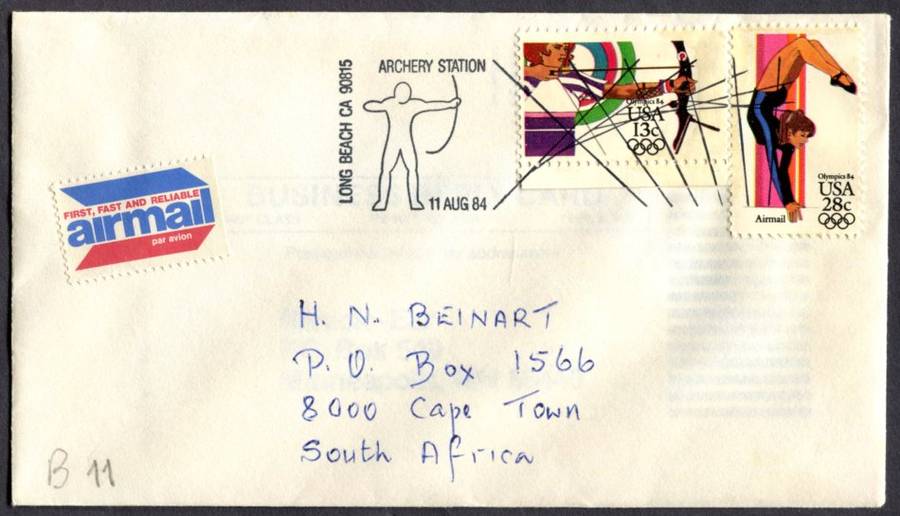 LONG BEACH CA 90815
ARCHERY STATION
11 AUG 84
Olympics 84
USA
13c
Olympics 84
USA
28c
Airmail
FIRST, FAST AND RELIABLE
airmail
par avion
H. N. BEINART
P. O. Box 1566
8000 Cape Town
South Africa
B 11
BUSINESS REPLY CARD